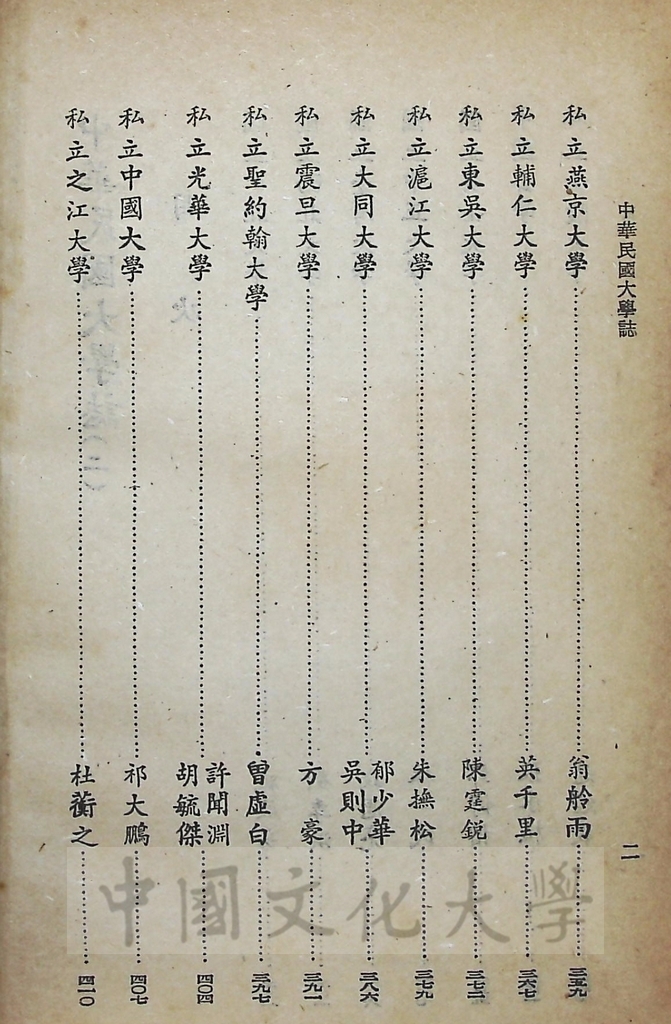 中華民國大學誌
二
私立燕京大學 翁舲雨 三五九
私立輔仁大學 英千里 三六七
私立東吳大學 陳霆銳 三七二
私立滬江大學 朱撫松 三七九
私立大同大學 郁少華 吳則中 三八六
私立震旦大學 方豪 三九一
私立聖約翰大學 曾虛白 三九七
私立光華大學 許聞淵 胡毓傑 四〇四
私立中國大學 祁大鵬 四〇七
私立之江大學 杜蘅之 四一〇
中國文化大學